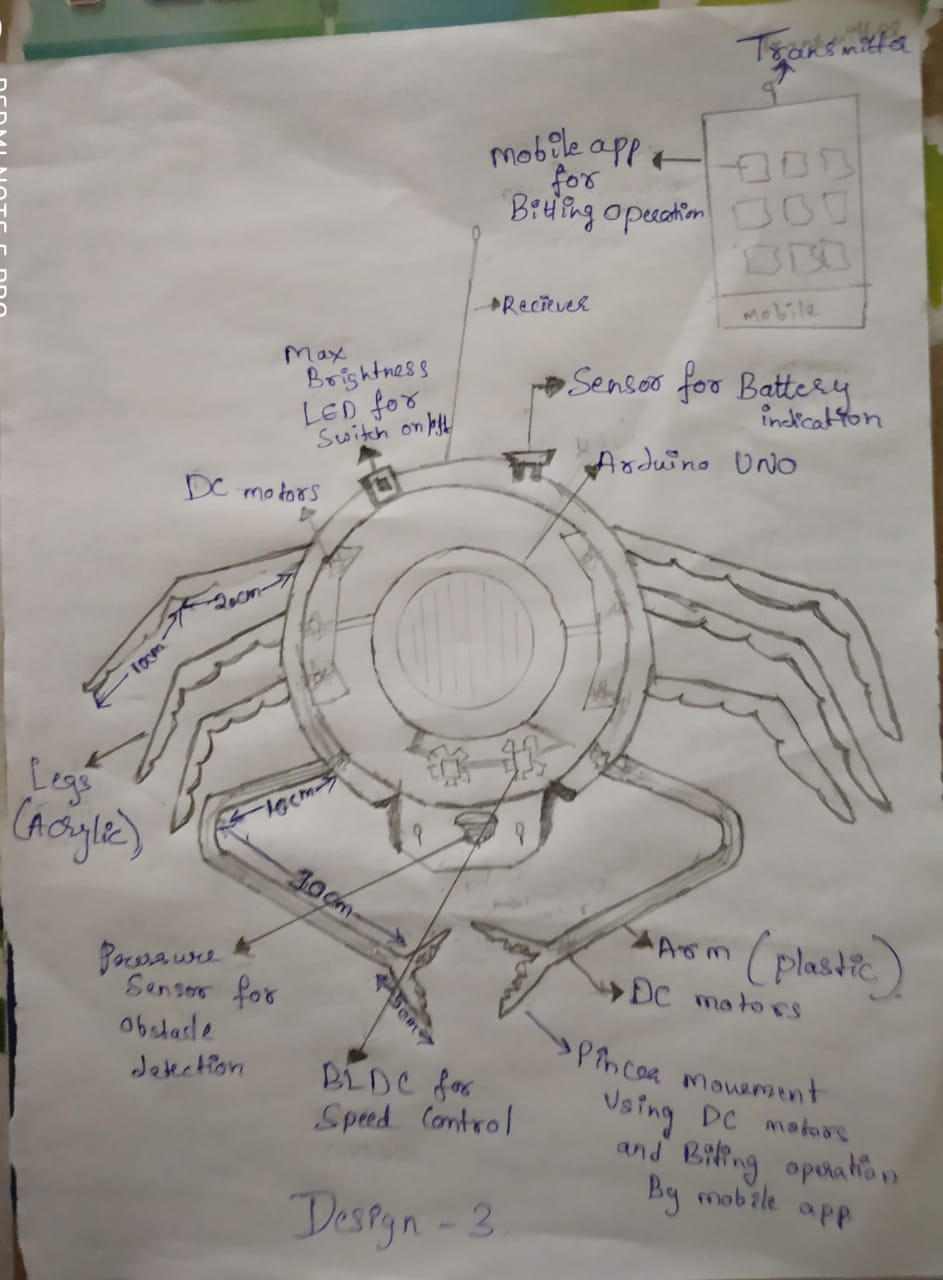 Transmitter
Mobile app
for
Bitting operation
mobile
Reciever
Max
Brightness
LED for
Switch on/off
Sensor for Battery
indication
Arduino UNO
DC motors
20cm
10cm
Legs
(Acrylic)
10cm
30cm
5cm
Pressure
Sensor for
obstacle
detection
BLDC for
Speed Control
Arm (plastic)
DC motors
Pincer movement
Using DC motors
and Biting operation
By mobile app
Design - 3
REDMI NOTE 5 PRO